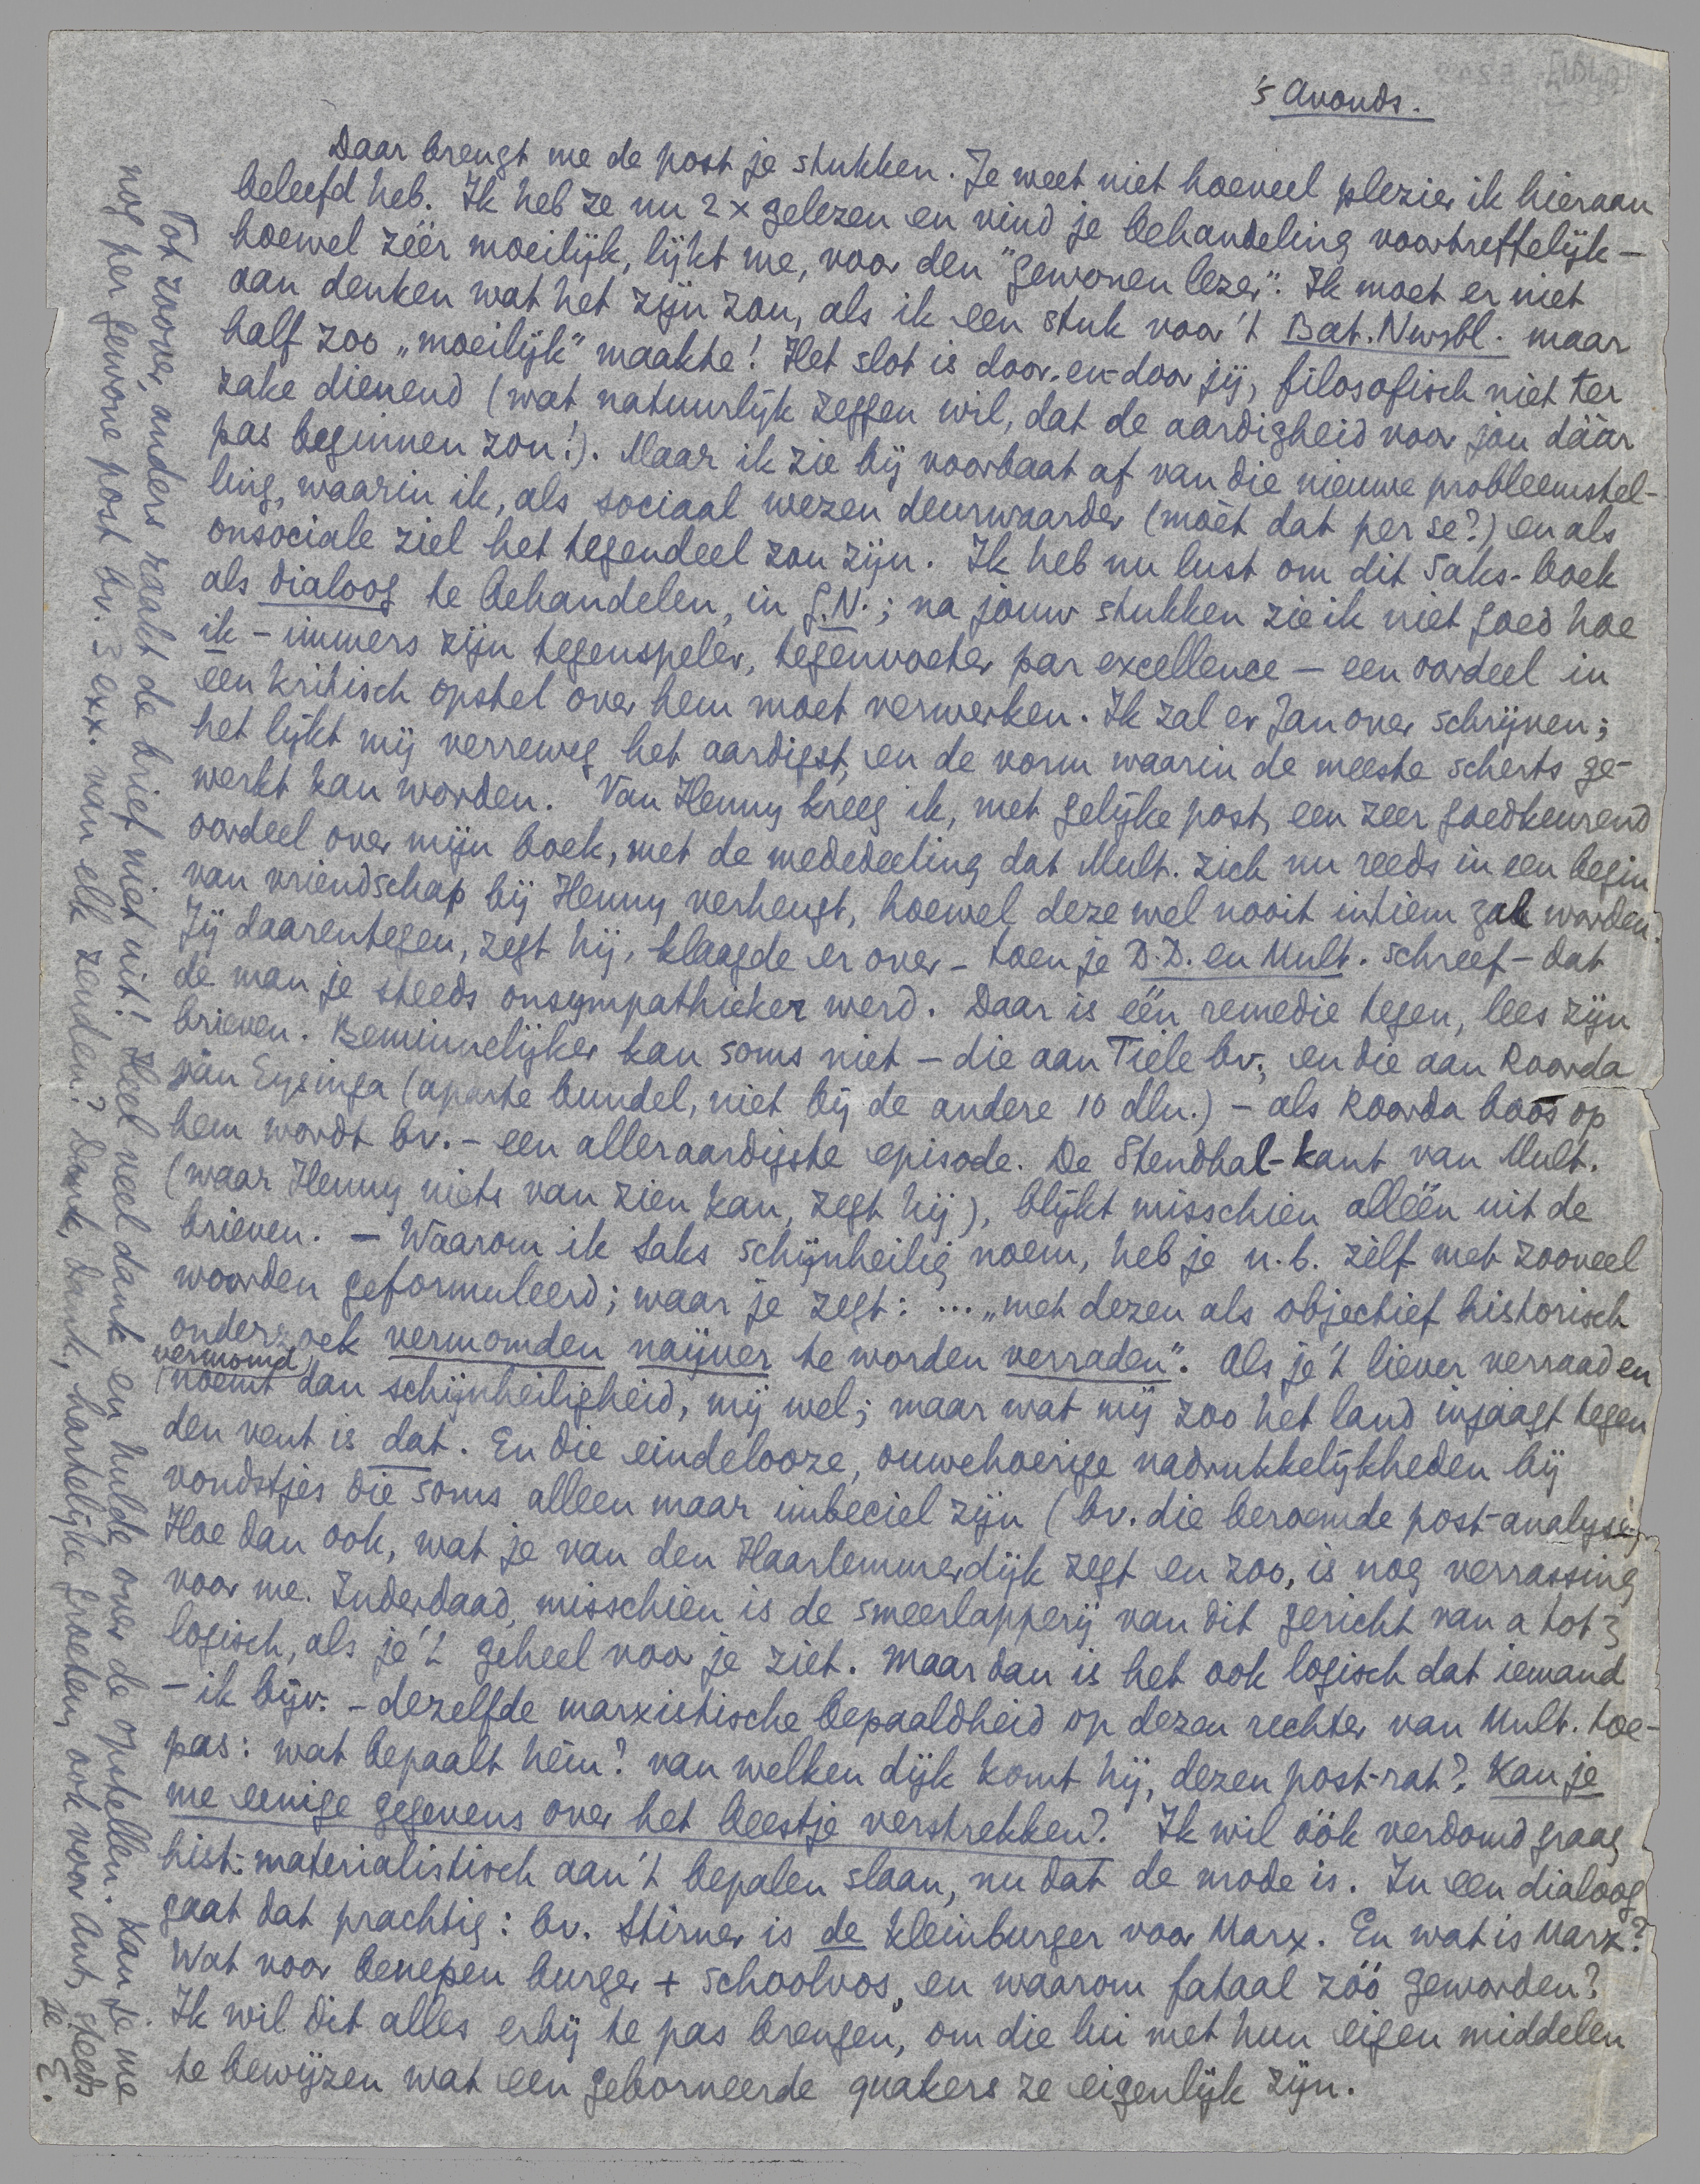 's Avonds.
Daar brengt me de post je stukken. Je weet niet hoeveel plezier ik hieraan
beleefd heb. Ik heb ze nu 2 x gelezen en vind je behandeling voortreffelijk –
hoewel zéér moeilijk, lijkt me, voor den "gewonen lezer". Ik moet er niet
aan denken wat het zijn zou, als ik een stuk voor 't Bat. Nwsbl. maar
half zoo „moeilijk" maakte! Het slot is door-en-door jij, filosofisch niet ter
zake dienend (wat natuurlijk zeggen wil, dat de aardigheid voor jou dáár
pas beginnen zou!). Maar ik zie bij voorbaat af van die nieuwe probleemstel-
ling, waarin ik, als sociaal wezen deurwaarder (móét dat per se?) en als
onsociale ziel het tegendeel zou zijn. Ik heb nu lust om dit Saks-boek
als dialoog te behandelen, in G.N.; na jouw stukken zie ik niet goed hoe
ik – immers zijn tegenspeler, tegenvoeter par excellence – een oordeel in
een kritisch opstel over hem moet verwerken. Ik zal er Jan over schrijven;
het lijkt mij verreweg het aardigst, en de vorm waarin de meeste scherts ge-
werkt kan worden. Van Henny kreeg ik, met gelijke post, een zeer goedkeurend
oordeel over mijn boek, met de mededeeling dat Mult. zich nu reeds in een begin
van vriendschap bij Henny verheugt, hoewel deze wel nooit intiem zal worden.
Jij daarentegen, zegt hij, klaagde er over – toen je D.D. en Mult. schreef – dat
de man je steeds onsympathieker werd. Daar is één remedie tegen, lees zijn
brieven. Beminnelijker kan soms niet – die aan Tiele bv., en die aan Roorda
van Eysinga (aparte bundel, niet bij de andere 10 dln.) – als Roorda boos op
hem wordt bv. – een alleraardigste episode. De Stendhal-kant van Mult.
(waar Henny niets van zien kan, zegt hij), blijkt misschien alléén uit de
brieven. – Waarom ik Saks schijnheilig noem, heb je n.b. zèlf met zooveel
woorden geformuleerd; waar je zegt: ... „met dezen als objectief historisch
onderzoek vermomden naijver te worden verraden". Als je 't liever verraad en
vermomd
noemt dan schijnheiligheid, mij wel; maar wat mij zoo het land injaagt tegen
den vent is dat. En die eindelooze, ouwehoerige nadrukkelijkheden bij
vondstjes die soms alleen maar imbeciel zijn (bv. die beroemde post-analyse).
Hoe dan ook, wat je van den Haarlemmerdijk zegt en zoo, is nog verrassing
voor me. Inderdaad, misschien is de smeerlapperij van dit gericht van a tot z
logisch, als je 't geheel voor je ziet. Maar dan is het ook logisch dat iemand
– ik bijv. – dezelfde marxistische bepaaldheid op dezen rechter van Mult. toe-
pas: wat bepaalt hèm? van welken dijk komt hij, dezen post-rat? Kan je
me eenige gegevens over het beestje verstrekken? Ik wil óók verdomd graag
hist.-materialistisch aan 't bepalen slaan, nu dat de mode is. In een dialoog
gaat dat prachtig: bv. Stirner is de kleinburger voor Marx. En wat is Marx?
Wat voor benepen burger + schoolvos, en waarom fataal zóó geworden?
Ik wil dit alles erbij te pas brengen, om die lui met hun eigen middelen
te bewijzen wat een geborneerde quakers ze eigenlijk zijn.
Tot zoover, anders raakt de brief niet uit! Heel veel dank en hulde over de opstellen. Kan je me
nog per gewone post bv. 3 exx. van elk zenden? Dank, dank, hartelijke groeten, ook voor Ant, steeds
je E.